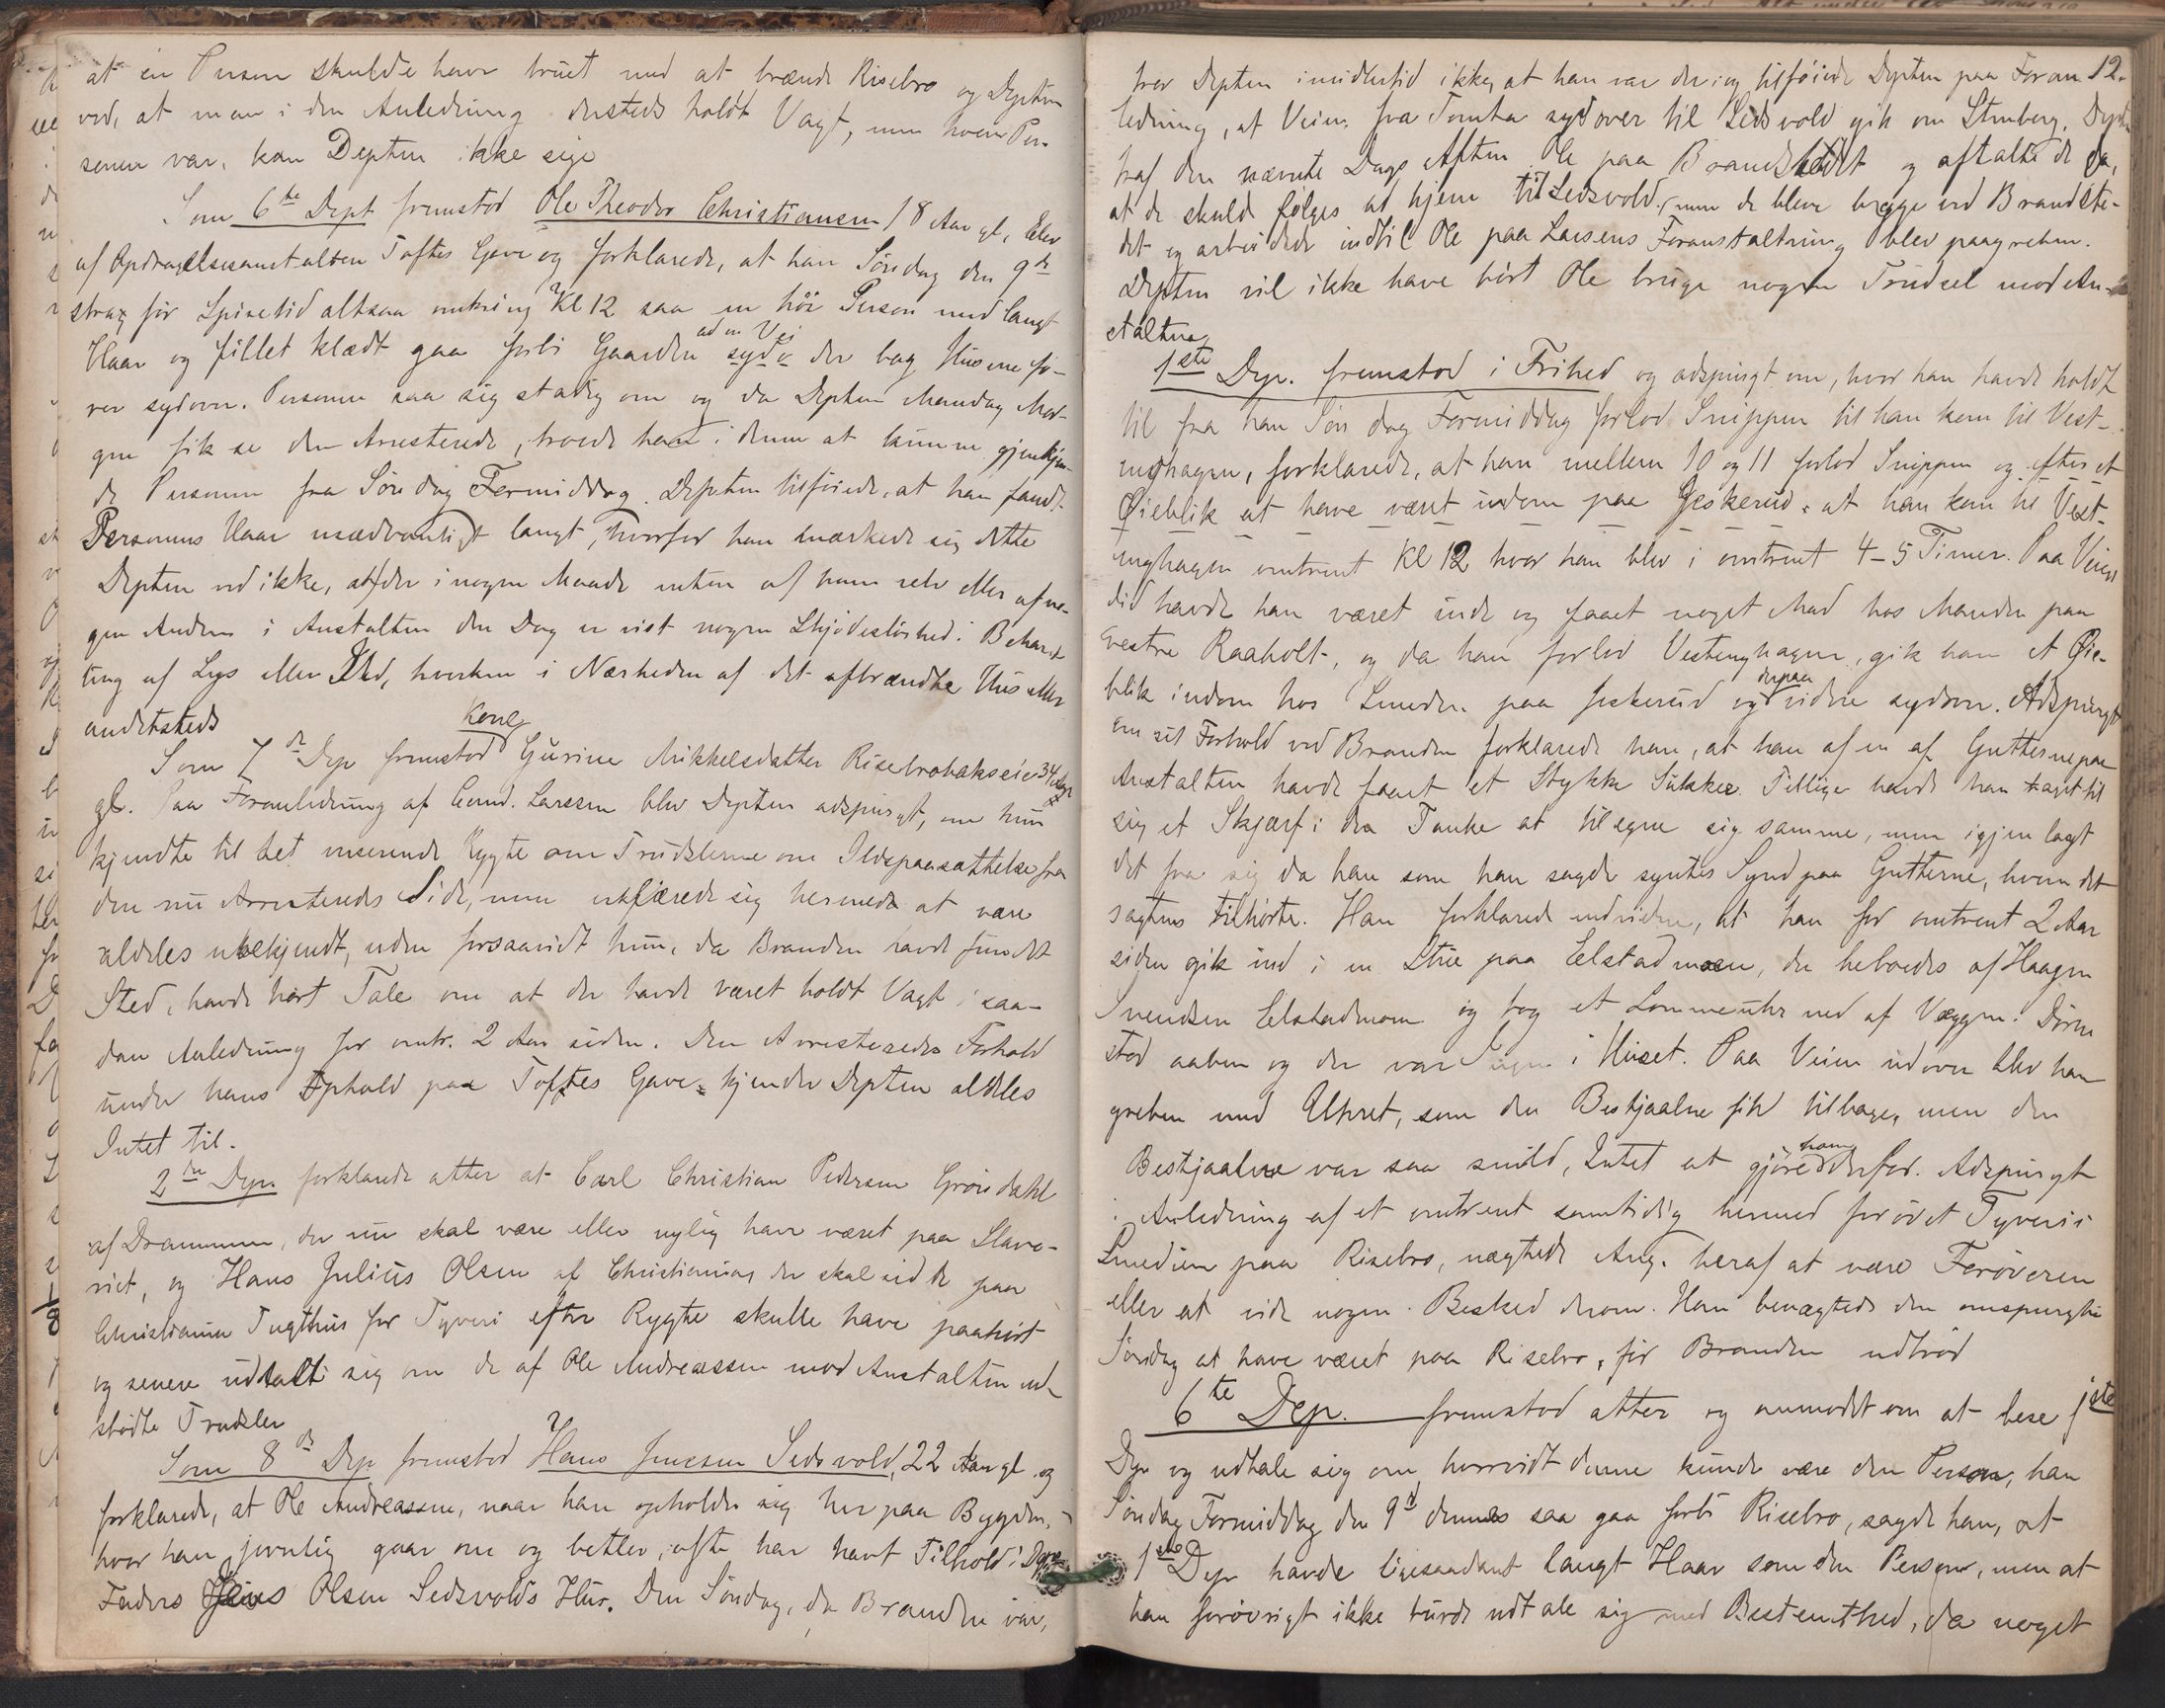 at en Person skulde have truet med at brænde Risebro og Depten
ved, at man i den Anledning dersteds holdt Vagt, men hvem Per-
sonen var, kan Depten ikke sige
Som 6te Dept fremstod Ole Theodor Christiansen 18 Aar gl, Elev
af Opdragelsesanstalten Toftes Gave og forklarede, at han Søndag den 9de
strax før Spisetid altsaa omkring Kl 12 saa en høi Person med langt
Haar og fillet klædt gaa forbi Gaarden ad en Vei syd v. der bag Husene fø-
rer sydover. Personen saa sig stadig om og da Depten Mandag Mor-
gen fik se den Arresterede, troede han i denne at kunne gjenkjen-
de Personen fra Søndag Formiddag. Depten tilføiede, at han fandt
Personens Haar usædvanligt langt, hvorfor han mærkede sig dette
Depten ved ikke, at der i nogen Maade enten af ham selv eller af no-
gen Anden i Anstalten den Dag er vist nogen Skjødesløshed i Behand-
ling af Lys eller Ild, hverken i Nærheden af det afbrændte Hus eller
andetsteds
Som 7de Dep fremstod Kone Gurine Mikkelsdatter Risebrobakseie 34 Aar
gl. Paa Foranledning af Const. Larssen blev Depten adspurgt, om hun
kjendte til det verserende Rygte om Trudslerne om Ildspaasættelse fra
den nu Arresteredes Side, men erklærede sig hermed at være
aldeles ubekjendt, uden forsaavidt hun, da Branden havde fundet
Sted, havde hørt Tale om at der havde været holdt Vagt i saa-
dan Anledning for omtr. 2 Aar siden. Den Arresteredes Forhold
under hans Ophold paa Toftes Gave kjender Depten aldeles
Intet til.
2den Dep. forklarede atter at Carl Christian Pedersen Grøndahl
af Drammen, der nu skal være eller nylig have været paa Slave-
riet, og Hans Julius Olsen af Christiania, der skal sidde paa
Christiania Tugthus for Tyveri efter Rygte skulle have paahørt
og senere udtalt sig om de af Ole Andreassen mod Anstalten ud-
stødte Trudsler
Som 8de Dep fremstod Hans Jensen Sedsvold, 22 Aar gl og
forklarede, at Ole Andreassen, naar han opholder sig her paa Bygden,
hvor han jevnlig gaar om og betler, ofte har havt Tilhold i Deptens
Faders Jens Olsen Sedsvolds Hus. Den Søndag, da Branden var,
12.
tror Depten imidlertid ikke, at han var der, og tilføiede Depten paa Foran-
ledning, at Veien fra Tomta sydover til Sedsvold gik om Stenberg. Depten
traf den nævnte Dags Aften Ole paa Brandstedet og aftalte de da,
at de skulde følges ad hjem til Sedsvold, men de bleve begge ved Brandste-
det og arbeidede indtil Ole paa Larsens Foranstaltning blev paagreben.
Depten vil ikke have hørt Ole bruge nogen Trudsel mod An-
stalten
1ste Dep. fremstod i Frihed og adspurgt om, hvor han havde holdt
til fra han Søndag Formiddag forlod Snippen til han kom til Vest-
enghagen, forklarede, at han mellem 10 og 11 forlod Snippen og efter et
Øieblik at have været indom paa Jeskerud, at han kom til Vest-
enghagen omtrent Kl 12 hvor han blev i omtrent 4-5 Timer. Paa Veien
did havde han været inde og faaet noget Mad hos Manden paa
vestre Raaholt, og da han forlod Vestenghagen, gik han et Øie-
blik indom hos Smeden paa Jeskerud og derpaa videre sydover. Adspurgt
om sit Forhold ved Branden forklarede han, at han af en af Gutterne paa
Anstalten havde faaet et Stykke Sukker. Tillige havde han taget til
sig et Skjærf i den Tanke at tilegne sig samme, men igjen lagt
det fra sig da han som han sagde syntes Synd paa Gutterne, hvem det
sagtens tilhørte. Han forklarede endvidere, at han for omtrent 2 Aar
siden gik ind i en Stue paa Elstadmoen, der beboedes af Haagen
Svendsen Elstadmoen og tog et Lommeuhr ned af Væggen. Døren
stod aaben og der var Ingen i Huset. Paa Veien udover blev han
greben med Uhret, som den Bestjaalne fik tilbage, men den
Bestjaalne var saa snild, Intet at gjøre ham derfor. Adspurgt
i Anledning af et omtrent samtidig hermed forøvet Tyveri i
Smedien paa Risebro, nægtede Ang. heraf at være Forøveren
eller at vide nogen Besked derom. Han benægtede den omspurgte
Søndag at have været paa Risebro, før Branden udbrød
6te Dep. fremstod atter og anmodet om at bese 1ste
Dep og udtale sig om, hvorvidt denne kunde være den Person, han
Søndag Formiddag den 9de dennes saa gaa forbi Risebro, sagde han, at
1ste Dep havde ligesaadant langt Haar som den Person, men at
han forøvrigt ikke turde udtale sig med Bestemthed, da noget